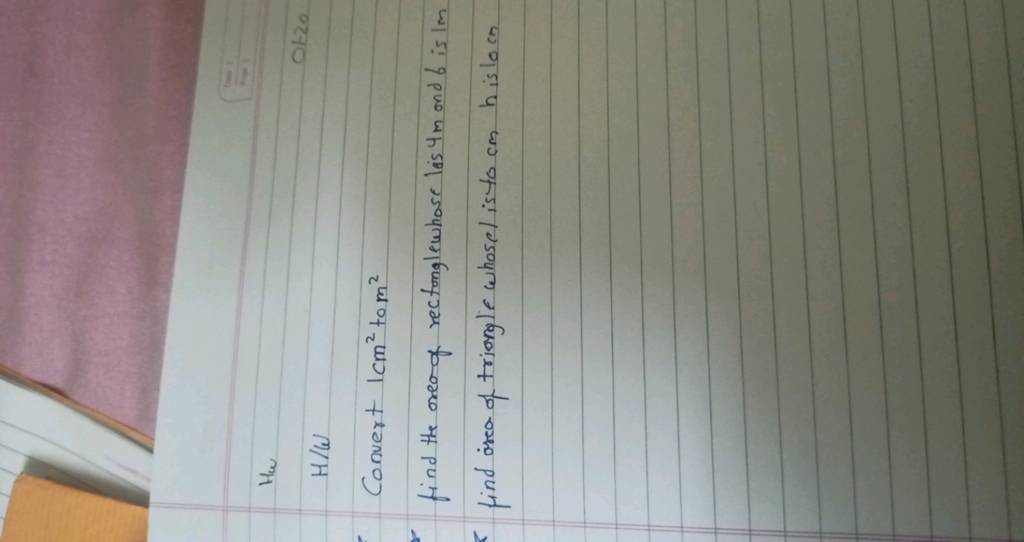 Hw
H/W
Convert 1cm² to m²
find the area of rectangle whose l is 4m and b is 1m
find area of triangle whose l is to cm h is 10 cm